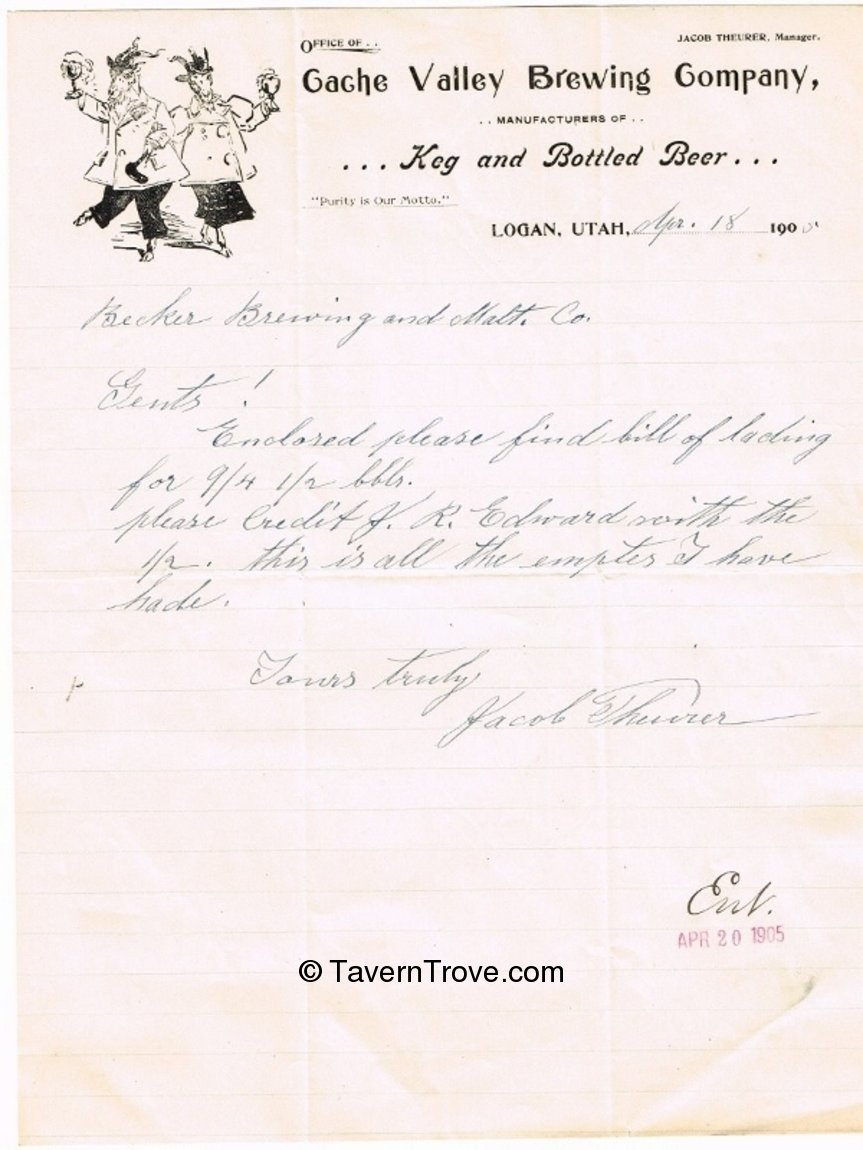 OFFICE OF . .
JACOB THEURER, Manager.
Cache Valley Brewing Company,
. . MANUFACTURERS OF . .
. . . Keg and Bottled Beer . . .
"Purity is Our Motto."
LOGAN, UTAH, Apr. 18 1905
Becker Brewing and Malt. Co.
Gents !
Enclosed please find bill of lading
for 9/4 1/2 bbls.
please Credit J. R. Edward with the
1/2. this is all the empties I have
hade.
Yours truly
Jacob Theurer
Ent.
APR 20 1905
© TavernTrove.com